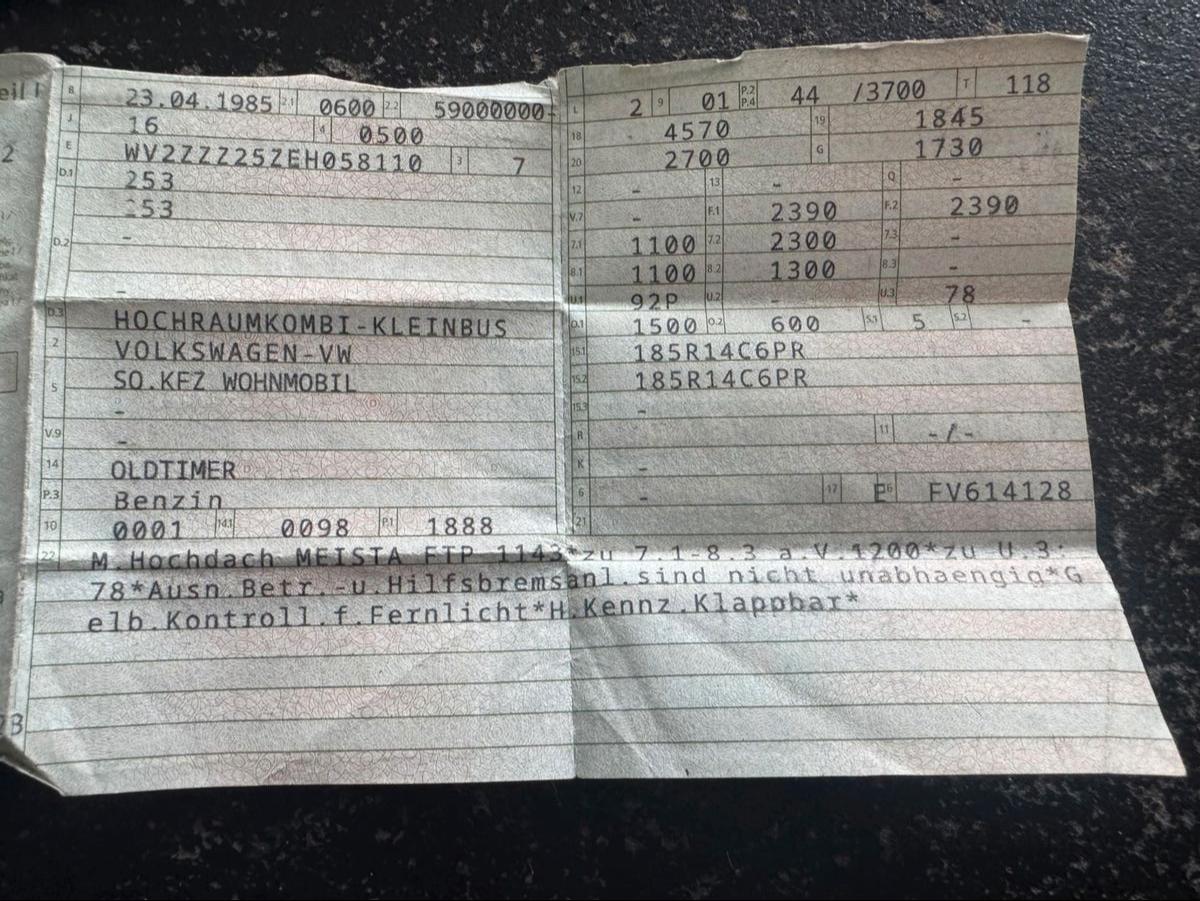 eil I
B 23.04.1985 2.1 0600 2.2 59000000-
J 16 4 0500
E WV2ZZZ25ZEH058110 3 7
D.1 253
253
D.2 -
-
D.3 HOCHRAUMKOMBI-KLEINBUS
2 VOLKSWAGEN-VW
5 SO.KFZ WOHNMOBIL
-
V.9 -
14 OLDTIMER
P.3 Benzin
10 0001 14.1 0098 P.1 1888
L 2 9 01 P.2 P.4 44 /3700 T 118
18 4570 19 1845
20 2700 G 1730
12 - 13 - Q -
V.7 - F.1 2390 F.2 2390
7.1 1100 7.2 2300 7.3 -
8.1 1100 8.2 1300 8.3 -
U.1 92P U.2 - U.3 78
O.1 1500 O.2 600 S.1 5 S.2 -
15.1 185R14C6PR
15.2 185R14C6PR
15.3 -
R 11 -/-
K -
6 - 17 E 16 FV614128
21
22 M.Hochdach MEISTA FTP 1143*zu 7.1-8.3 a.V.1200*zu U.3:
78*Ausn.Betr.-u.Hilfsbremsanl.sind nicht unabhaengig*G
elb.Kontroll.f.Fernlicht*H.Kennz.Klappbar*